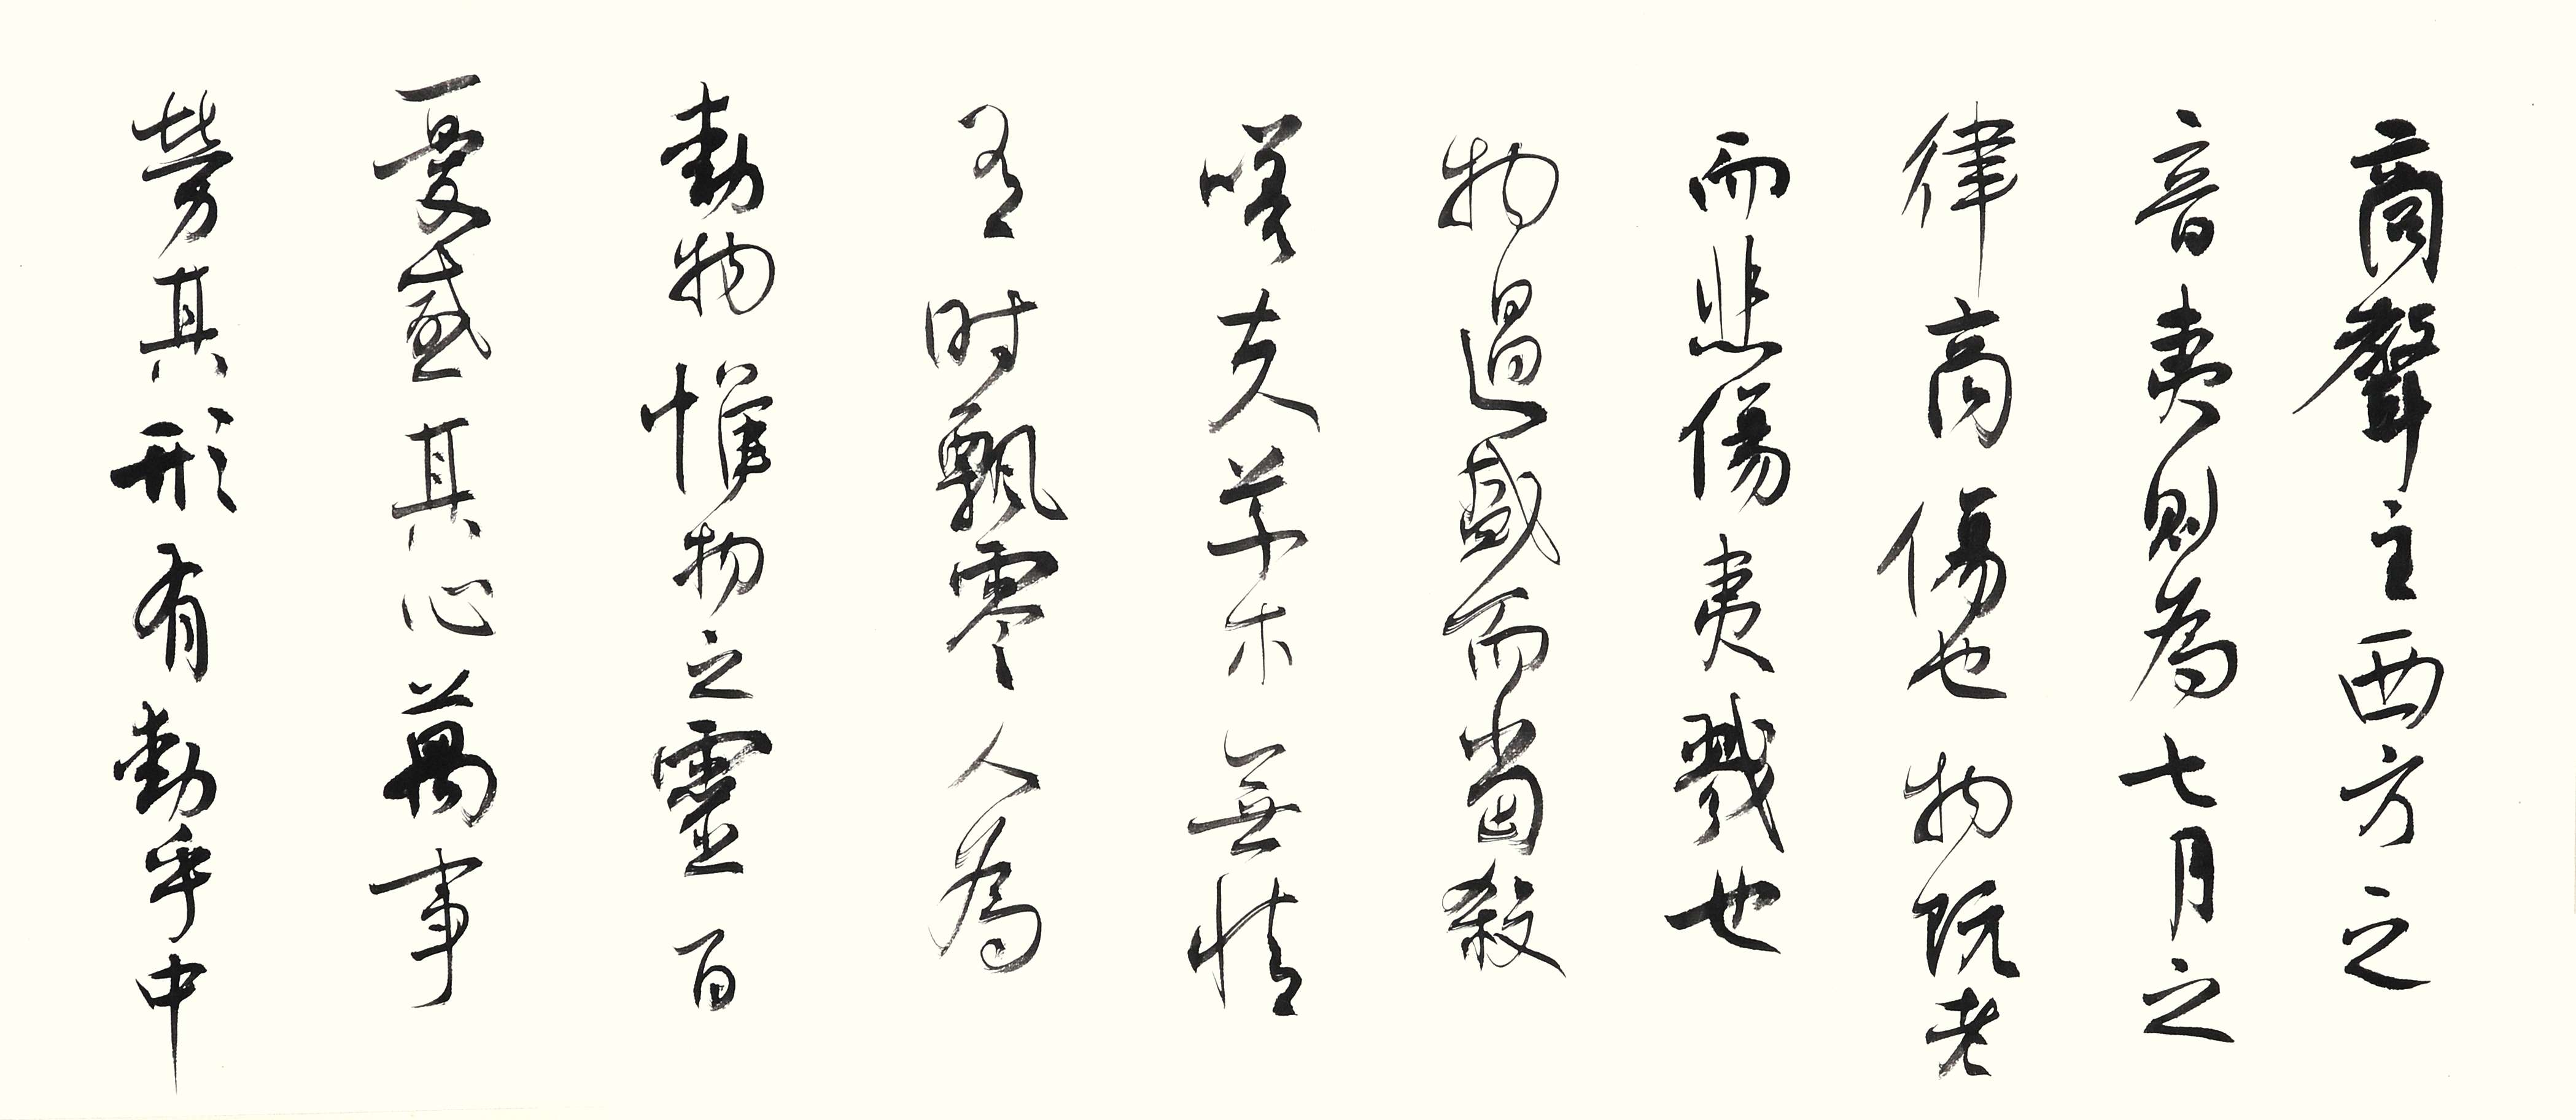 商聲主西方之
音夷則為七月之
律商傷也物既老
而悲傷夷戮也
物過盛而當殺
嗟夫草木無情
有时飄零人為
動物惟物之靈百
憂感其心萬事
勞其形有動乎中